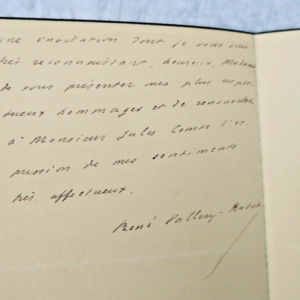 une invitation dont je vous suis
très reconnaissant, heureux, Madame
de vous présenter mes plus respec-
tueux hommages et de renouveler
à Monsieur Jules Comte l'ex-
pression de mes sentiments
très affectueux.
René Vallery-Radot